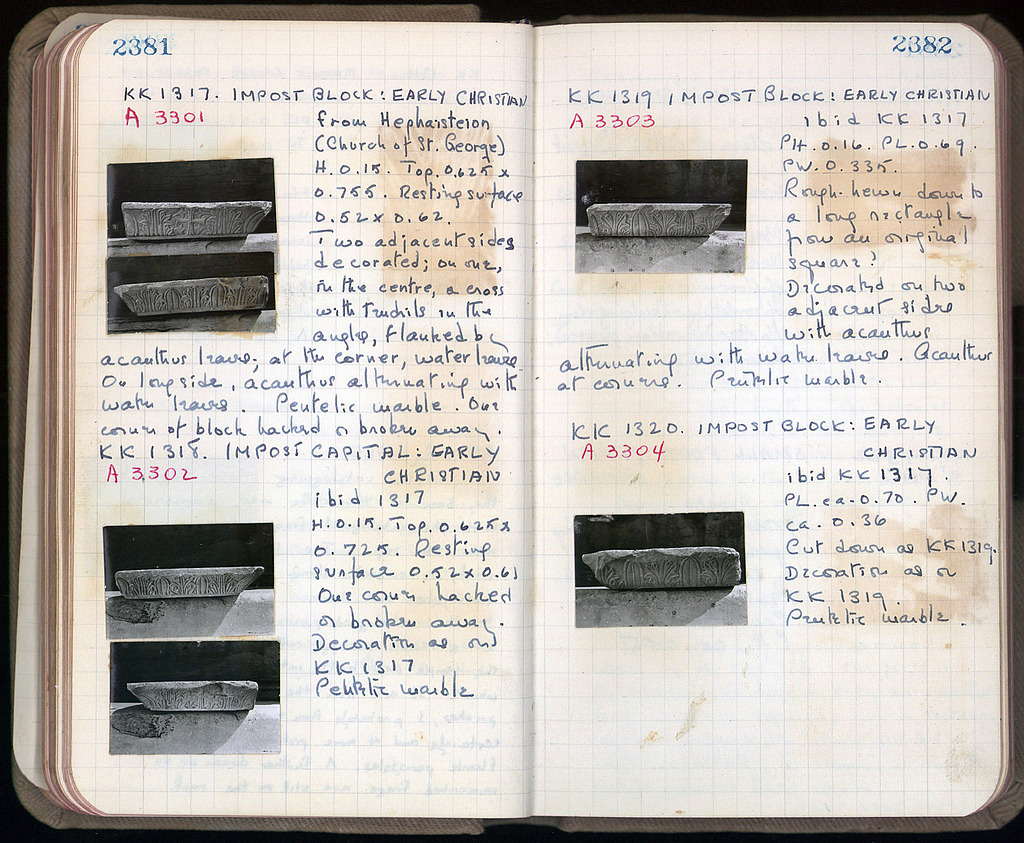 2381
KK 1317. IMPOST BLOCK: EARLY CHRISTIAN
A 3301
from Hephaisteion
(Church of St. George)
H. 0.15. Top. 0.625 x
0.755. Resting surface
0.52 x 0.62.
Two adjacent sides
decorated; on one,
in the centre, a cross
with tendrils in the
angles, flanked by
acanthus leaves; at the corner, water leaves.
On long side, acanthus alternating with
water leaves. Pentelic marble. One
corner of block hacked or broken away.
KK 1318. IMPOST CAPITAL: EARLY
A 3302
CHRISTIAN
ibid 1317
H. 0.15. Top. 0.625 x
0.725. Resting
surface 0.52 x 0.61
One corner hacked
or broken away.
Decoration as on
KK 1317
Pentelic marble
2382
KK 1319 IMPOST BLOCK: EARLY CHRISTIAN
A 3303
ibid KK 1317
PH. 0.16. PL. 0.69.
PW. 0.335.
Rough-hewn down to
a long rectangle
from an original
square?
Decorated on two
adjacent sides
with acanthus
alternating with water leaves. Acanthus
at corners. Pentelic marble.
KK 1320. IMPOST BLOCK: EARLY
A 3304
CHRISTIAN
ibid KK 1317.
PL. ca. 0.70. PW.
ca. 0.36
Cut down as KK 1319.
Decoration as on
KK 1319.
Pentelic marble.